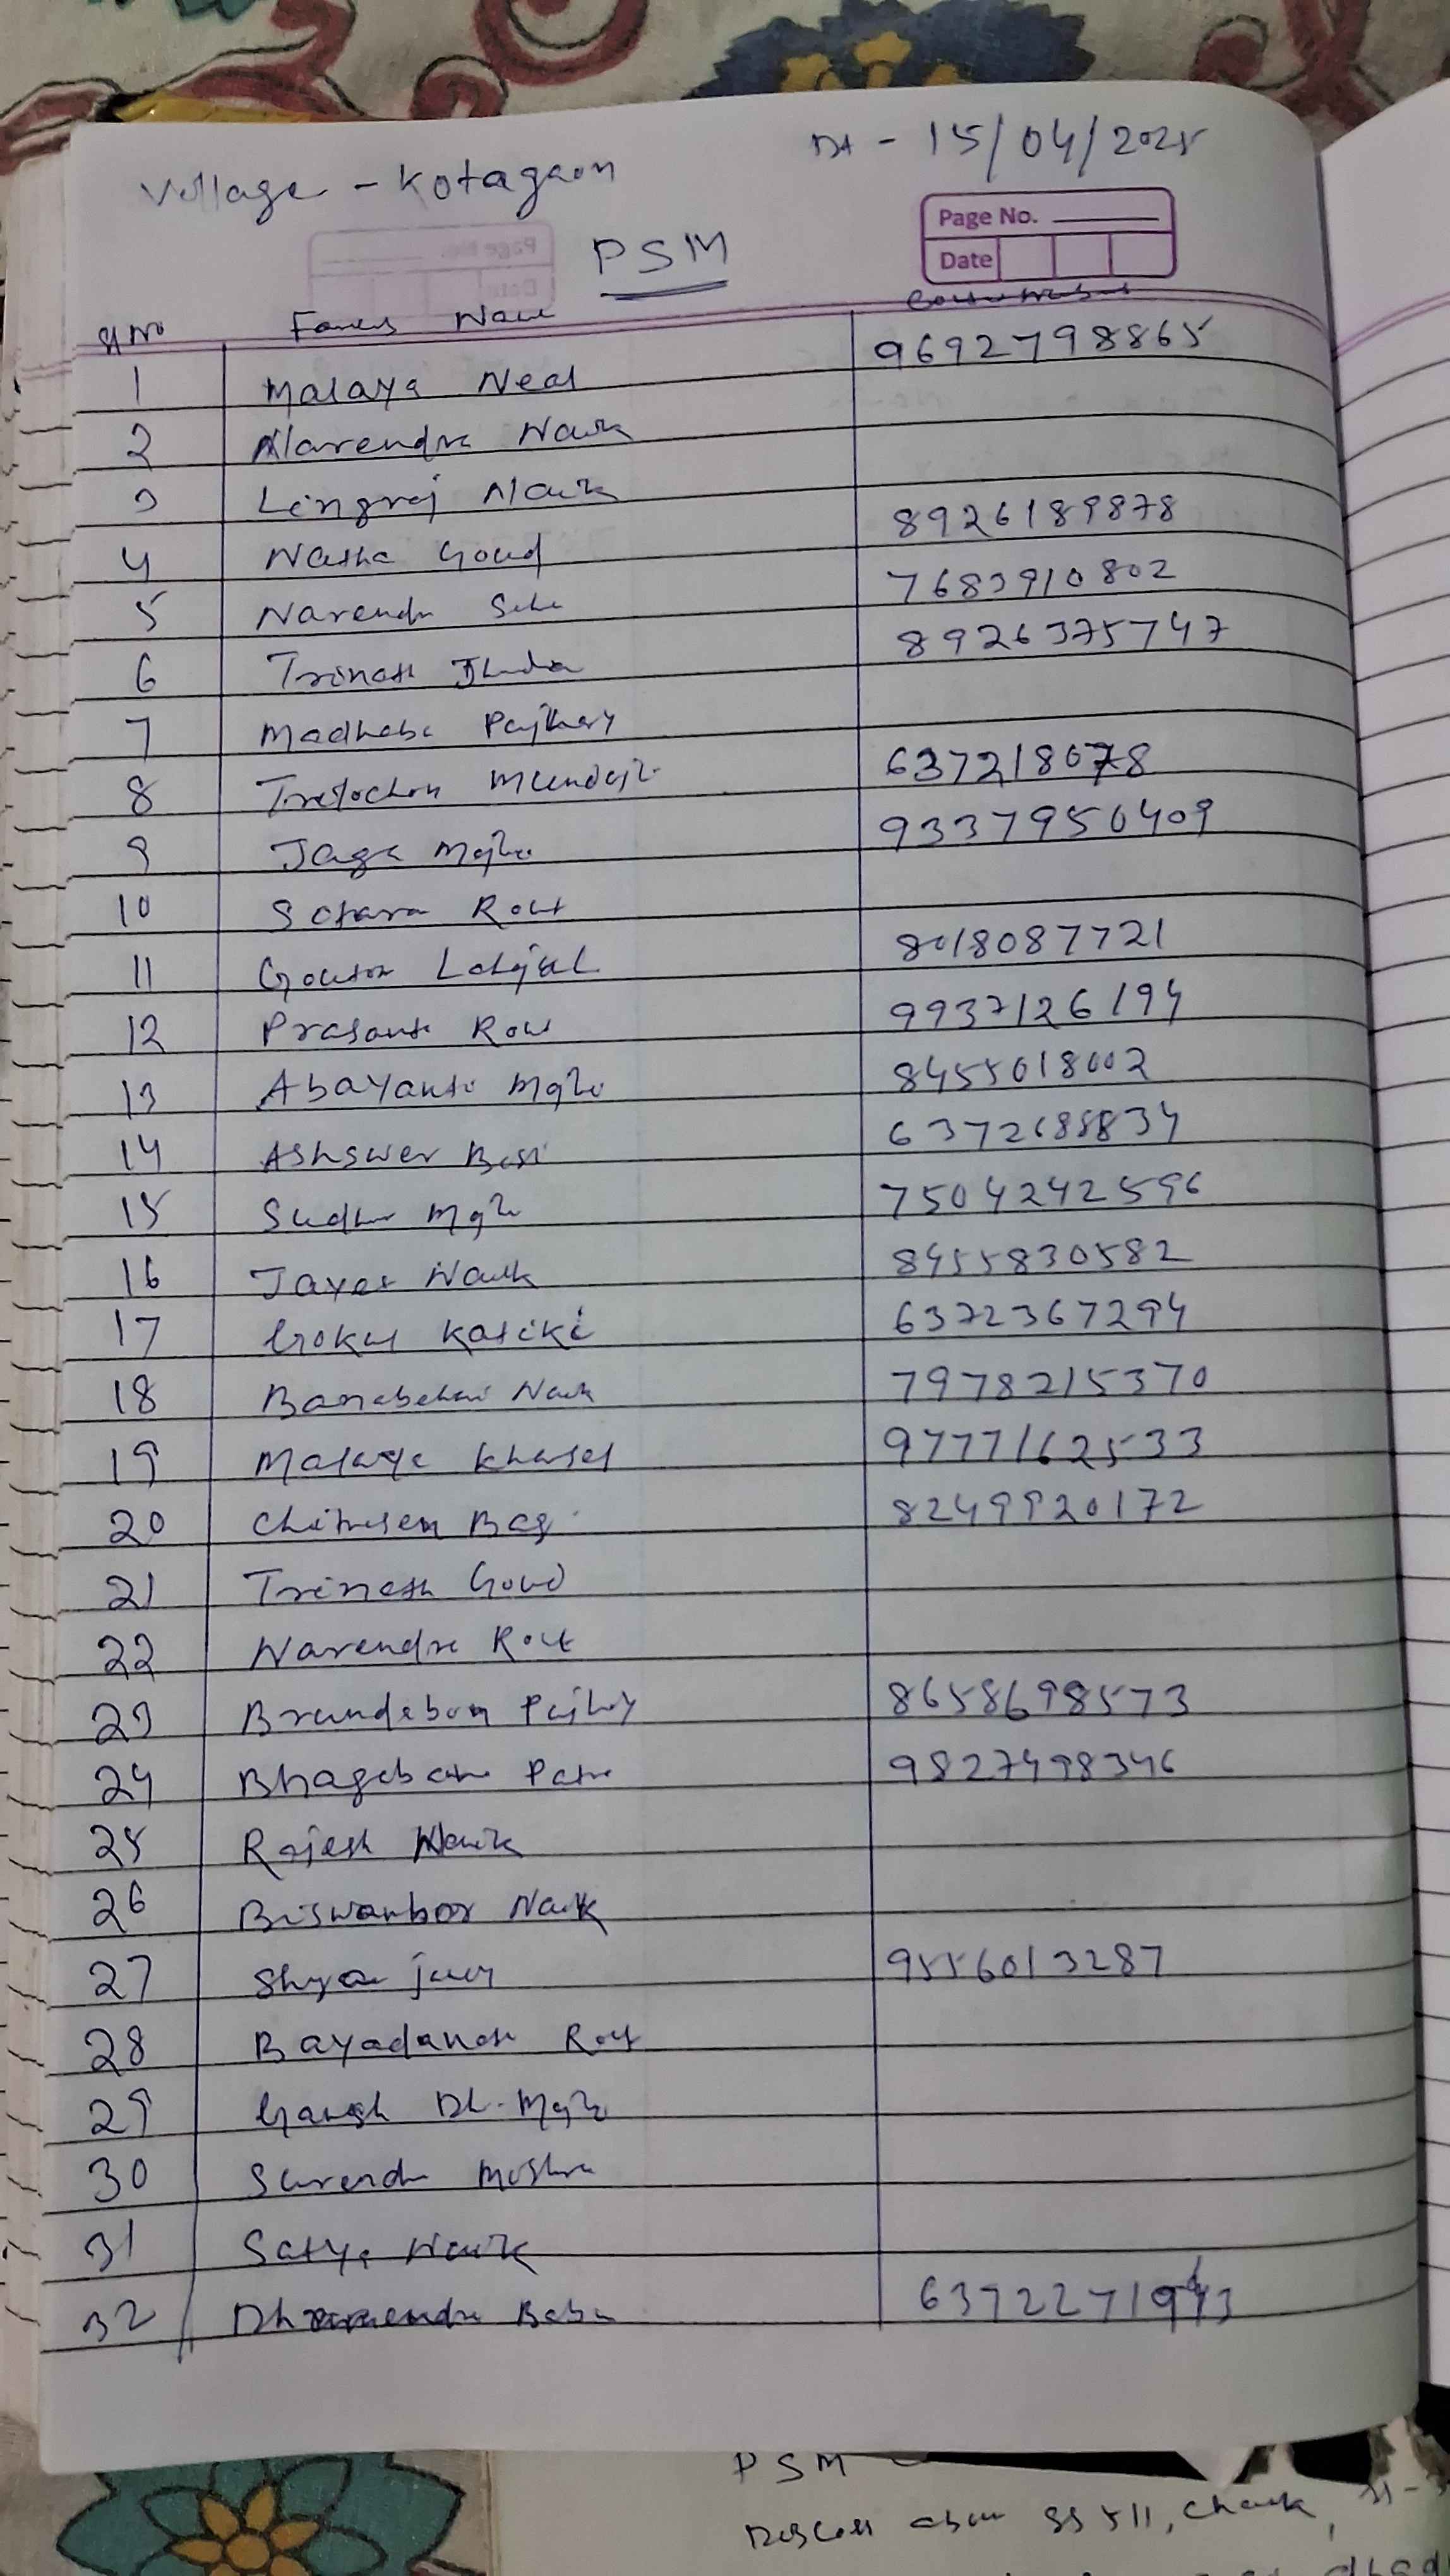 Village - Kotagaon
Dt - 15/04/2025
Page No.
Date
PSM
Sl No Farmer Name Contact Number
1 Malaya Neal 9692798865
2 Narendra Naik
3 Lingraj Naik
4 Natha Goud 8926189878
5 Narendra 7683910802
6 Trinath 8926375747
7 Madhaba Pajhary
8 Trilochan Mundajhi 637218078
9 Jaga Majhi 9337950409
10 Rout
11 Goutam 8018087721
12 Prasant Rout 9937126194
13 Abayanti Majhi 8455018002
14 Ashswer 63721688834
15 Sudhir Majhi 7504242596
16 Jayer Naik 8455830582
17 Gokul Katiki 6372367294
18 Banabehari Naik 7978215370
19 Malaya Kharsel 9777162533
20 Chitrasen Bag 8249920172
21 Trinath Goud
22 Narendra Rout
23 Brundaban Pajhary 8658698573
24 Bhagabati 9827498346
25 Rajesh Naik
26 Biswanbor Naik
27 Shyam 9556013287
28 Rout
29 Ganesh Dh. Majhi
30 Surendra Mishra
31 Satya Naik
32 Dharmendra Babu
PSM
Discuss about SS 511,